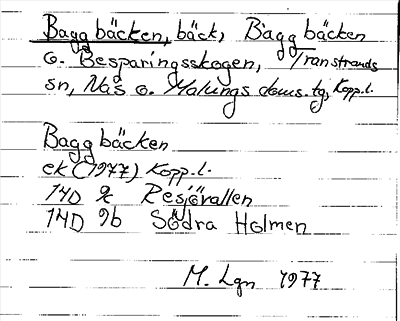 Baggbäcken, bäck, Baggbäcken
o. Besparingsskogen, Transtrands
sn, Nås o. Malungs doms. tg, Kopp.l.
Baggbäcken
ek (1977) Kopp.l.
14D 9c Resjövallen
14D 9b Södra Holmen
M. Lgn 1977